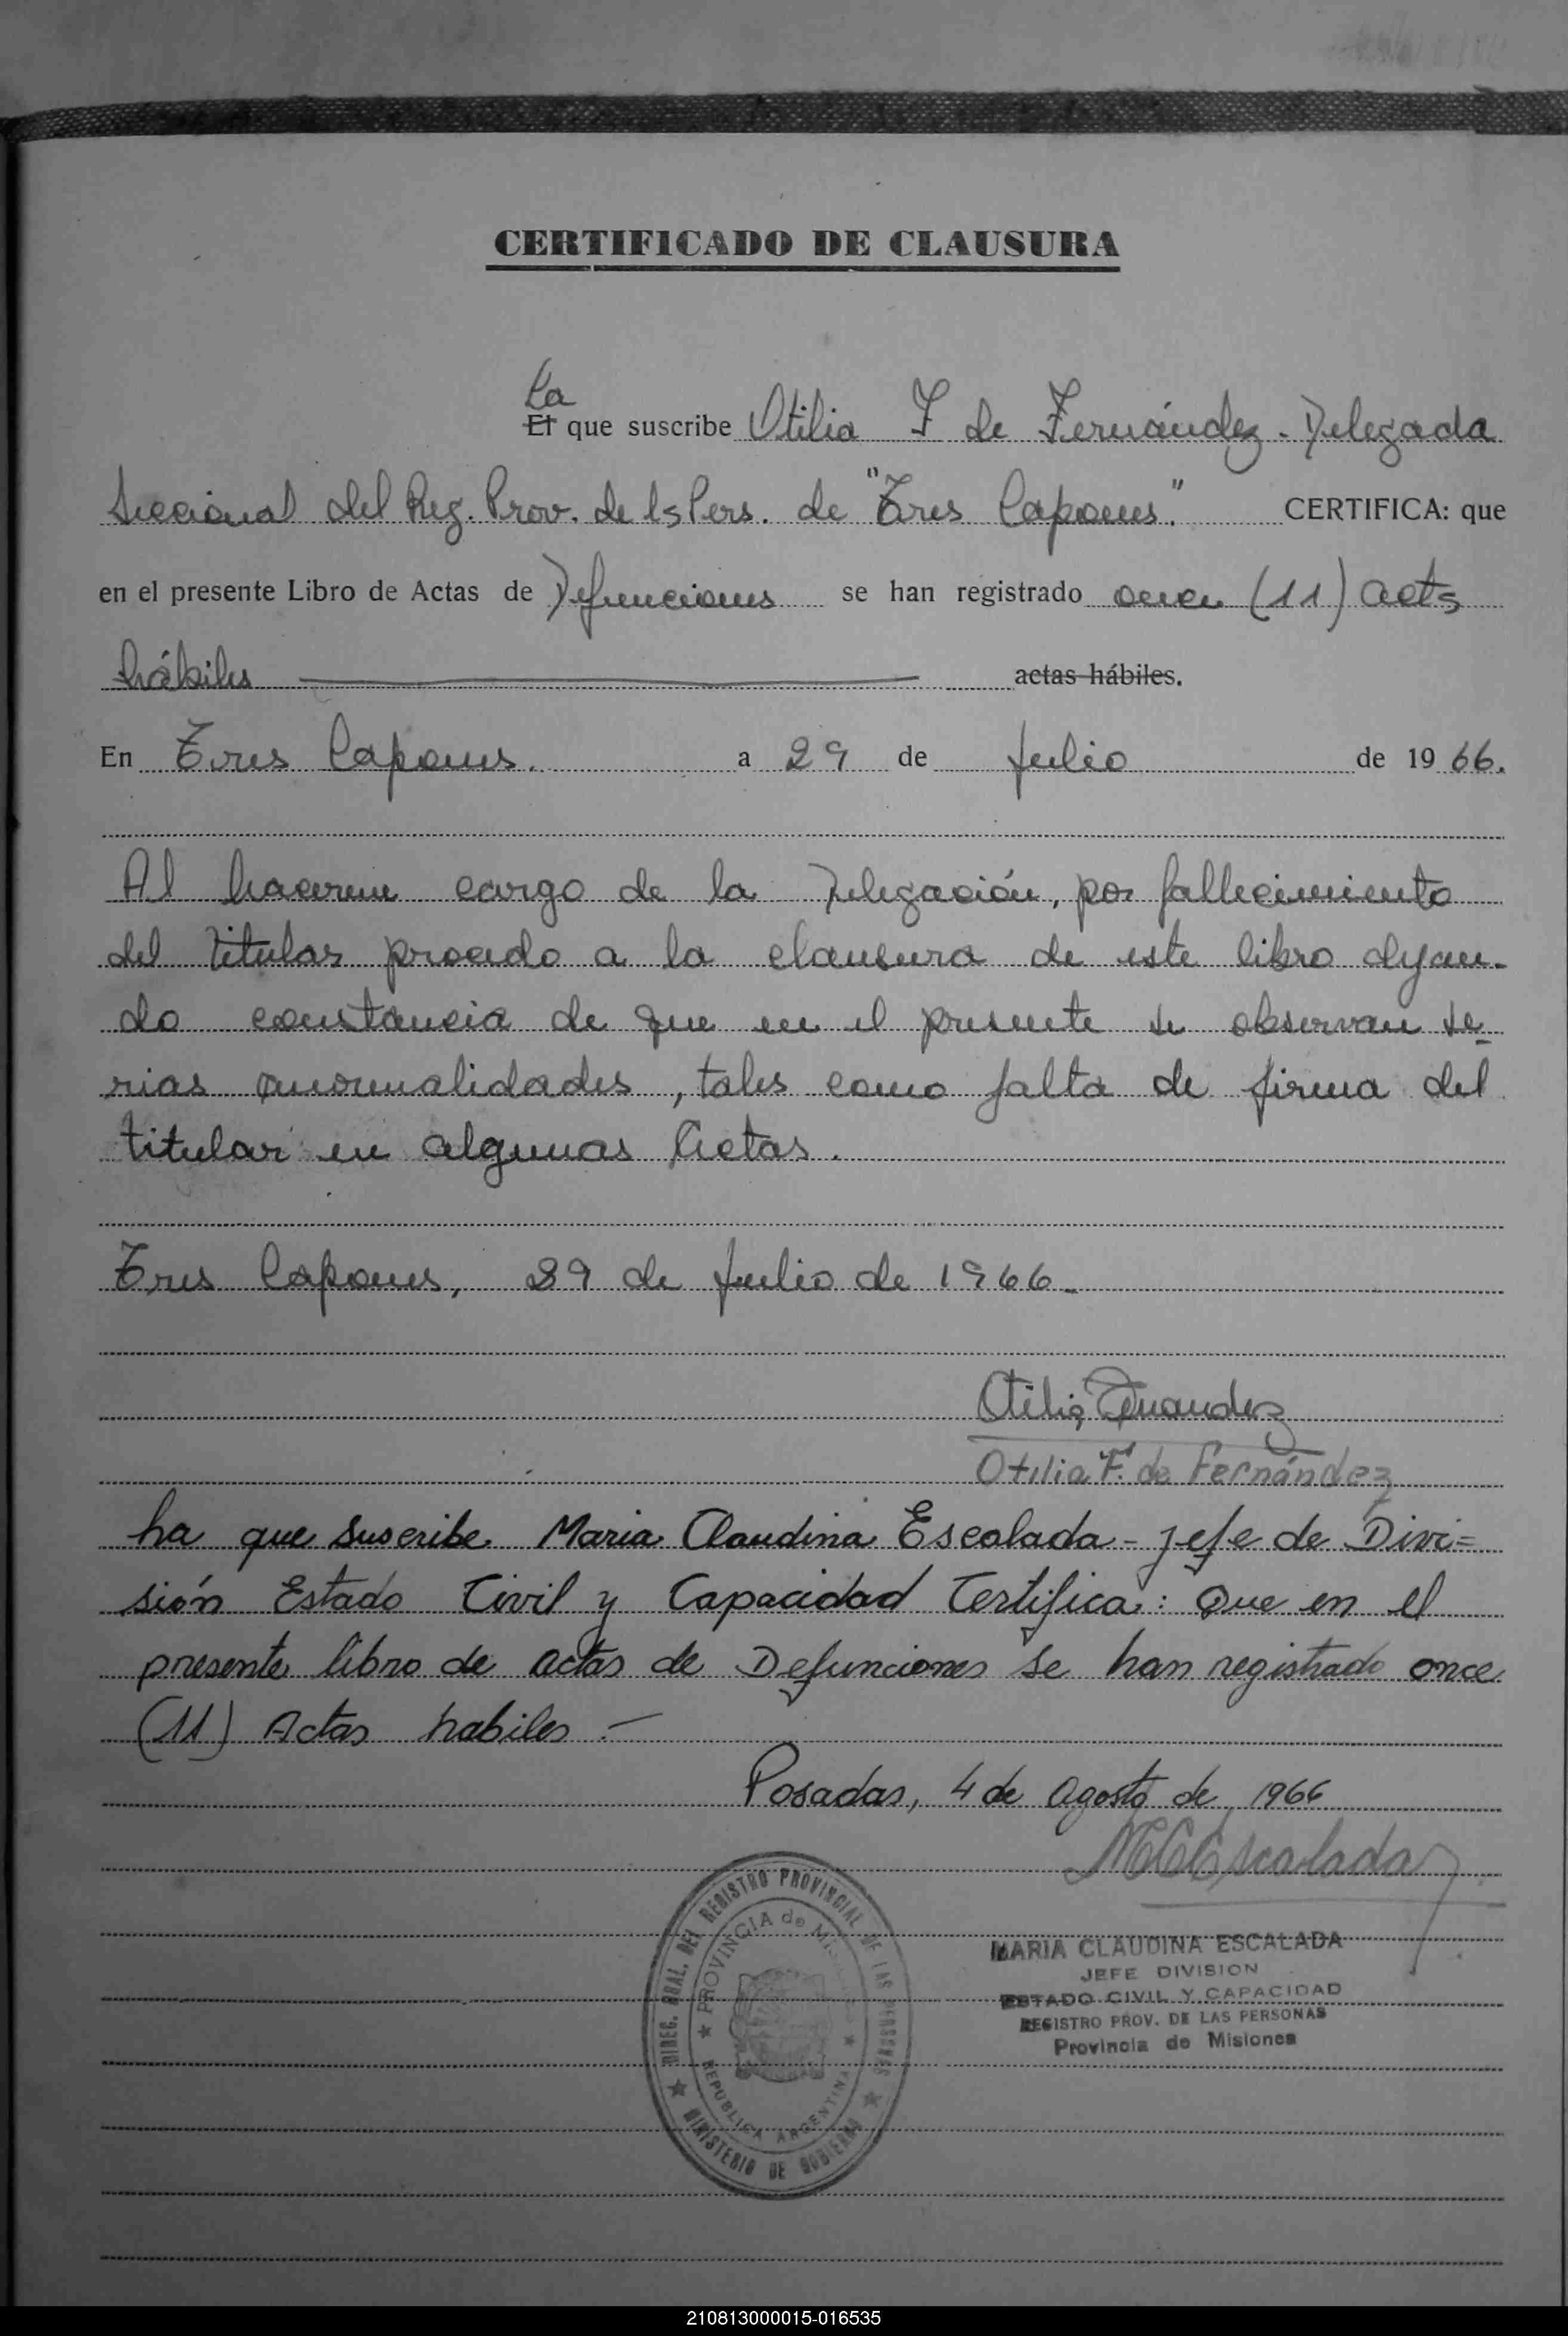 CERTIFICADO DE CLAUSURA
La
El que suscribe Otilia F de Fernández - Delegada
Seccional del Reg. Prov. de ls Pers. de "Tres Capones." CERTIFICA: que
en el presente Libro de Actas de Defunciones se han registrado once (11) acts
hábiles actas hábiles.
En Tres Capones. a 29 de Julio de 19 66.
Al hacerme cargo de la Delegación, por fallecimiento
del titular procedo a la clausura de este libro dejan-
do constancia de que en el presente se observan se-
rias anormalidades, tales como falta de firma del
titular en algunas Actas.
Tres Capones, 29 de Julio de 1966.
Otilia Fernandez
Otilia F. de Fernández
La que suscribe Maria Claudina Escalada - Jefe de Divi=
sión Estado Civil y Capacidad Certifica: Que en el
presente libro de actas de Defunciones se han registrado once
(11) Actas habiles . —
Posadas, 4 de Agosto de 1966
MCEscalada
DIREC. GRAL. DEL REGISTRO PROVINCIAL DE LAS PERSONAS
PROVINCIA de MISIONES
REPUBLICA ARGENTINA
MINISTERIO DE GOBIERNO
MARIA CLAUDINA ESCALADA
JEFE DIVISION
ESTADO CIVIL Y CAPACIDAD
REGISTRO PROV. DE LAS PERSONAS
Provincia de Misiones
210813000015-016535